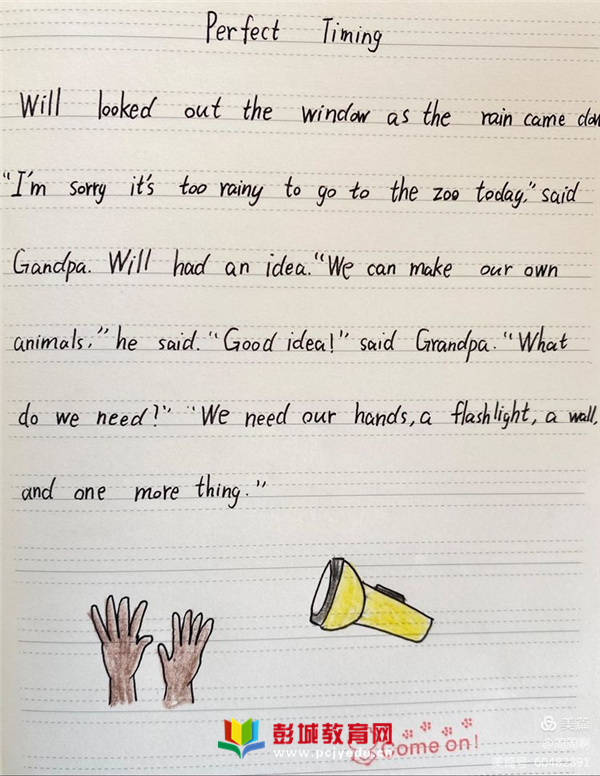 Perfect Timing
Will looked out the window as the rain came dow
"I'm sorry it's too rainy to go to the zoo today," said
Gandpa. Will had an idea. "We can make our own
animals," he said. "Good idea!" said Grandpa. "What
do we need?" "We need our hands, a flashlight, a wall,
and one more thing."
彭城教育网
www.pcjyedu.cn
come on!
美篇